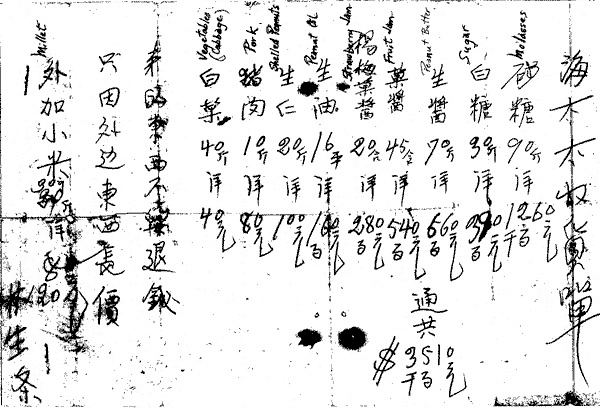 海太太收貨單
Molasses 砂糖 90斤 洋 12千百60元
Sugar 白糖 30斤 洋 390元
Peanut Butter 生醬 70斤 洋 6百60元
Fruit Jam 菓醬 45仐 洋 5百40元
Strawberry Jam 楊梅菓醬 20仐 洋 2百80元
Peanut Oil 生油 16斤 洋 1百60元
Shelled Peanuts 生仁 20斤 洋 100元
Pork 猪肉 10斤 洋 80元
Vegetables (Cabbage) 白菜 40斤 洋 40元
通共 $35千百10元
来的東西不 退錢
只因外边東西長價
Millet 外加小米 洋 120
林生条